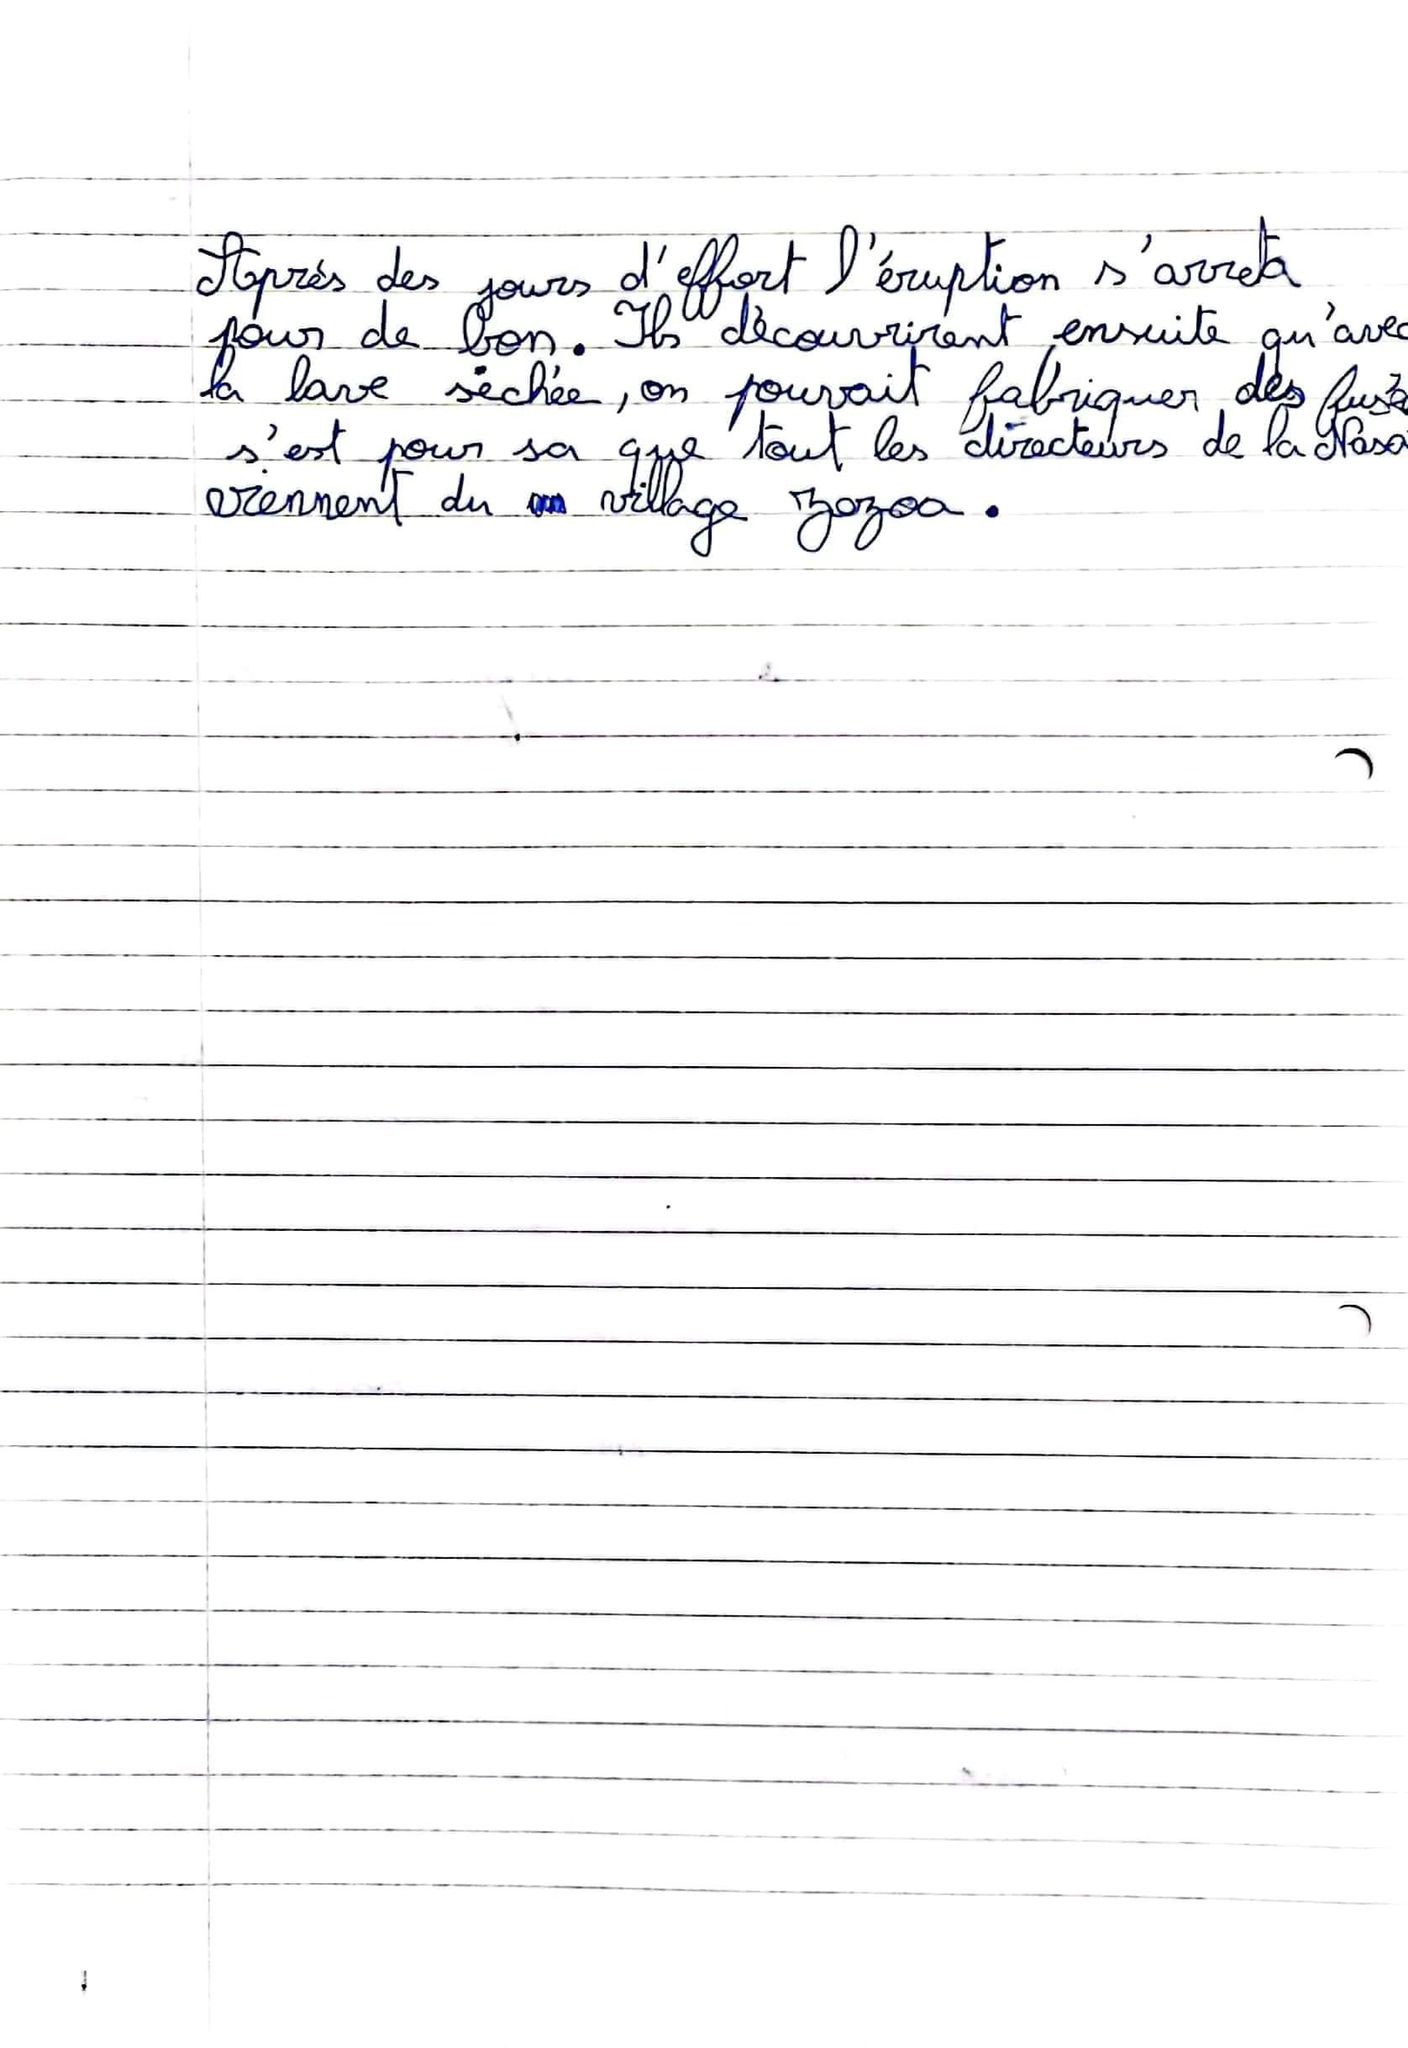 Après des jours d'effort l'éruption s'arreta
pour de bon. Ils découvrirent ensuite qu'avec
la lave séchée, on pouvait fabriquer des
s'est pour sa que tout les directeurs de la Nasa
viennent du village zozoa.